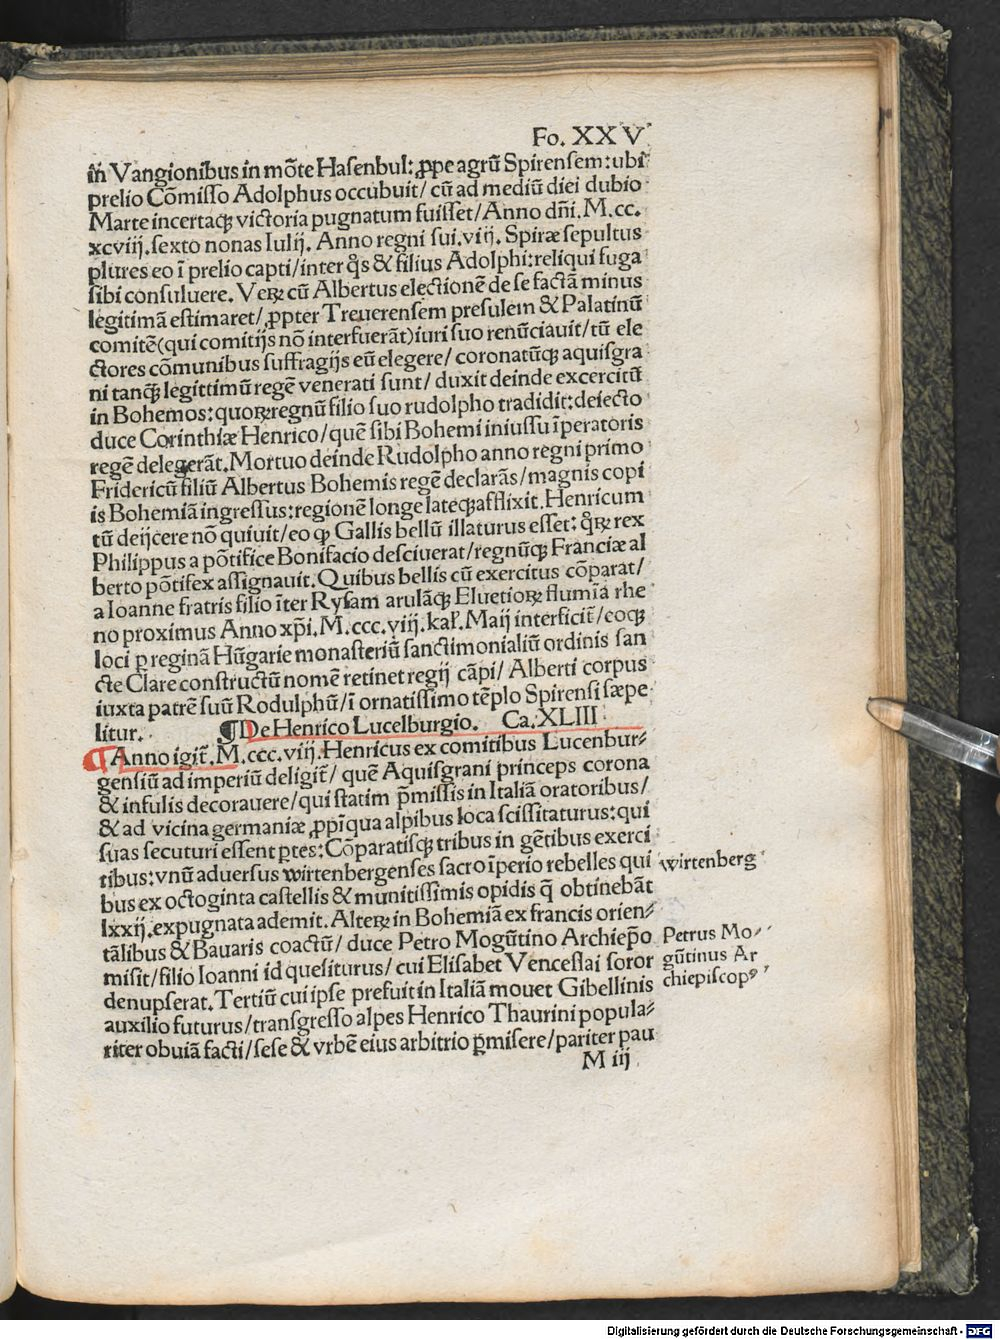 Fo. XXV
in̄ Vangionibus in mōte Hasenbul: ꝓpe agrū Spirensem: ubi
prelio Cōmisso Adolphus occubuit/ cū ad mediū diei dubio
Marte incertaqꝫ victoria pugnatum fuisset/ Anno dñi. M.cc.
xcviij. sexto nonas Iulij. Anno regni sui. vij. Spiræ sepultus
plures eo ī prelio capti/ inter q̊s & filius Adolphi: reliqui fuga
sibi consuluere. Veꝝ cū Albertus electionē de se factā minus
legitimā estimaret/ ꝓpter Treuerensem presulem & Palatinū
comitē (qui comitijs nō interfuerāt) iuri suo renūciauit/ tū ele
ctores cōmunibus suffragijs eū elegere/ coronatūqꝫ aquisgra
ni tanqꝫ legittimū regē venerati sunt/ duxit deinde excercitū
in Bohemos: quoꝝ regnū filio suo rudolpho tradidit: deiecto
duce Corinthiæ Henrico/ quē sibi Bohemi iniussu īperatoris
regē delegerāt. Mortuo deinde Rudolpho anno regni primo
Fridericū filiū Albertus Bohemis regē declarās/ magnis copi
is Bohemiā ingressus: regionē longe lateqꝫ afflixit. Henricum
tū deijcere nō quiuit/ eo ꝙ Gallis bellū illaturus esset: q̊ꝝ rex
Philippus a pōtifice Bonifacio desciuerat/ regnūqꝫ Franciæ al
berto pōtifex assignauit. Quibus bellis cū exercitus cōparat/
a Ioanne fratris filio īter Rysam arulāqꝫ Eluetioꝝ flumīa rhe
no proximus Anno xp̄i. M.ccc.viij. kaľ. Maij interficit̄/ eoqꝫ
loci ꝑ reginā Hūgarie monasteriū sanctimonialiū ordinis san
cte Clare constructū nomē retinet regij cāpi/ Alberti corpus
iuxta patrē suū Rodulphū/ ī ornatissimo tēplo Spirensi sæpe
litur. ¶De Henrico Lucelburgio. Ca. XLIII
¶Anno igit̄. M.ccc.viij. Henricus ex comitibus Lucenbur⸗
gensiū ad imperiū deligit̄/ quē Aquisgrani princeps corona
& infulis decorauere/ qui statim p̄missis in Italiā oratoribus/
& ad vicina germaniæ ꝓpīqua alpibus loca scissitaturus: qui
suas secuturi essent ꝑtes: Cōparatisqꝫ tribus in gētibus exerci
tibus: vnū aduersus wirtenbergenses sacro īperio rebelles qui
bus ex octoginta castellis & munitissimis opidis q̄ obtinebāt
lxxij. expugnata ademit. Alteꝝ in Bohemiā ex francis orien⸗
tālibus & Bauaris coactū/ duce Petro Mogūtino Archiep̄o
misit/ filio Ioanni id quesiturus/ cui Elisabet Venceslai soror
denupserat. Tertiū cui ipse prefuit in Italiā mouet Gibellinis
auxilio futurus/ transgresso alpes Henrico Thaurini popula⸗
riter obuiā facti/ sese & vrbē eius arbitrio ꝑmisere/ pariter pau
M iij
wirtenberg
Petrus Mo⸗
gūtinus Ar
chiepiscopꝰ
Digitalisierung gefördert durch die Deutsche Forschungsgemeinschaft - DFG